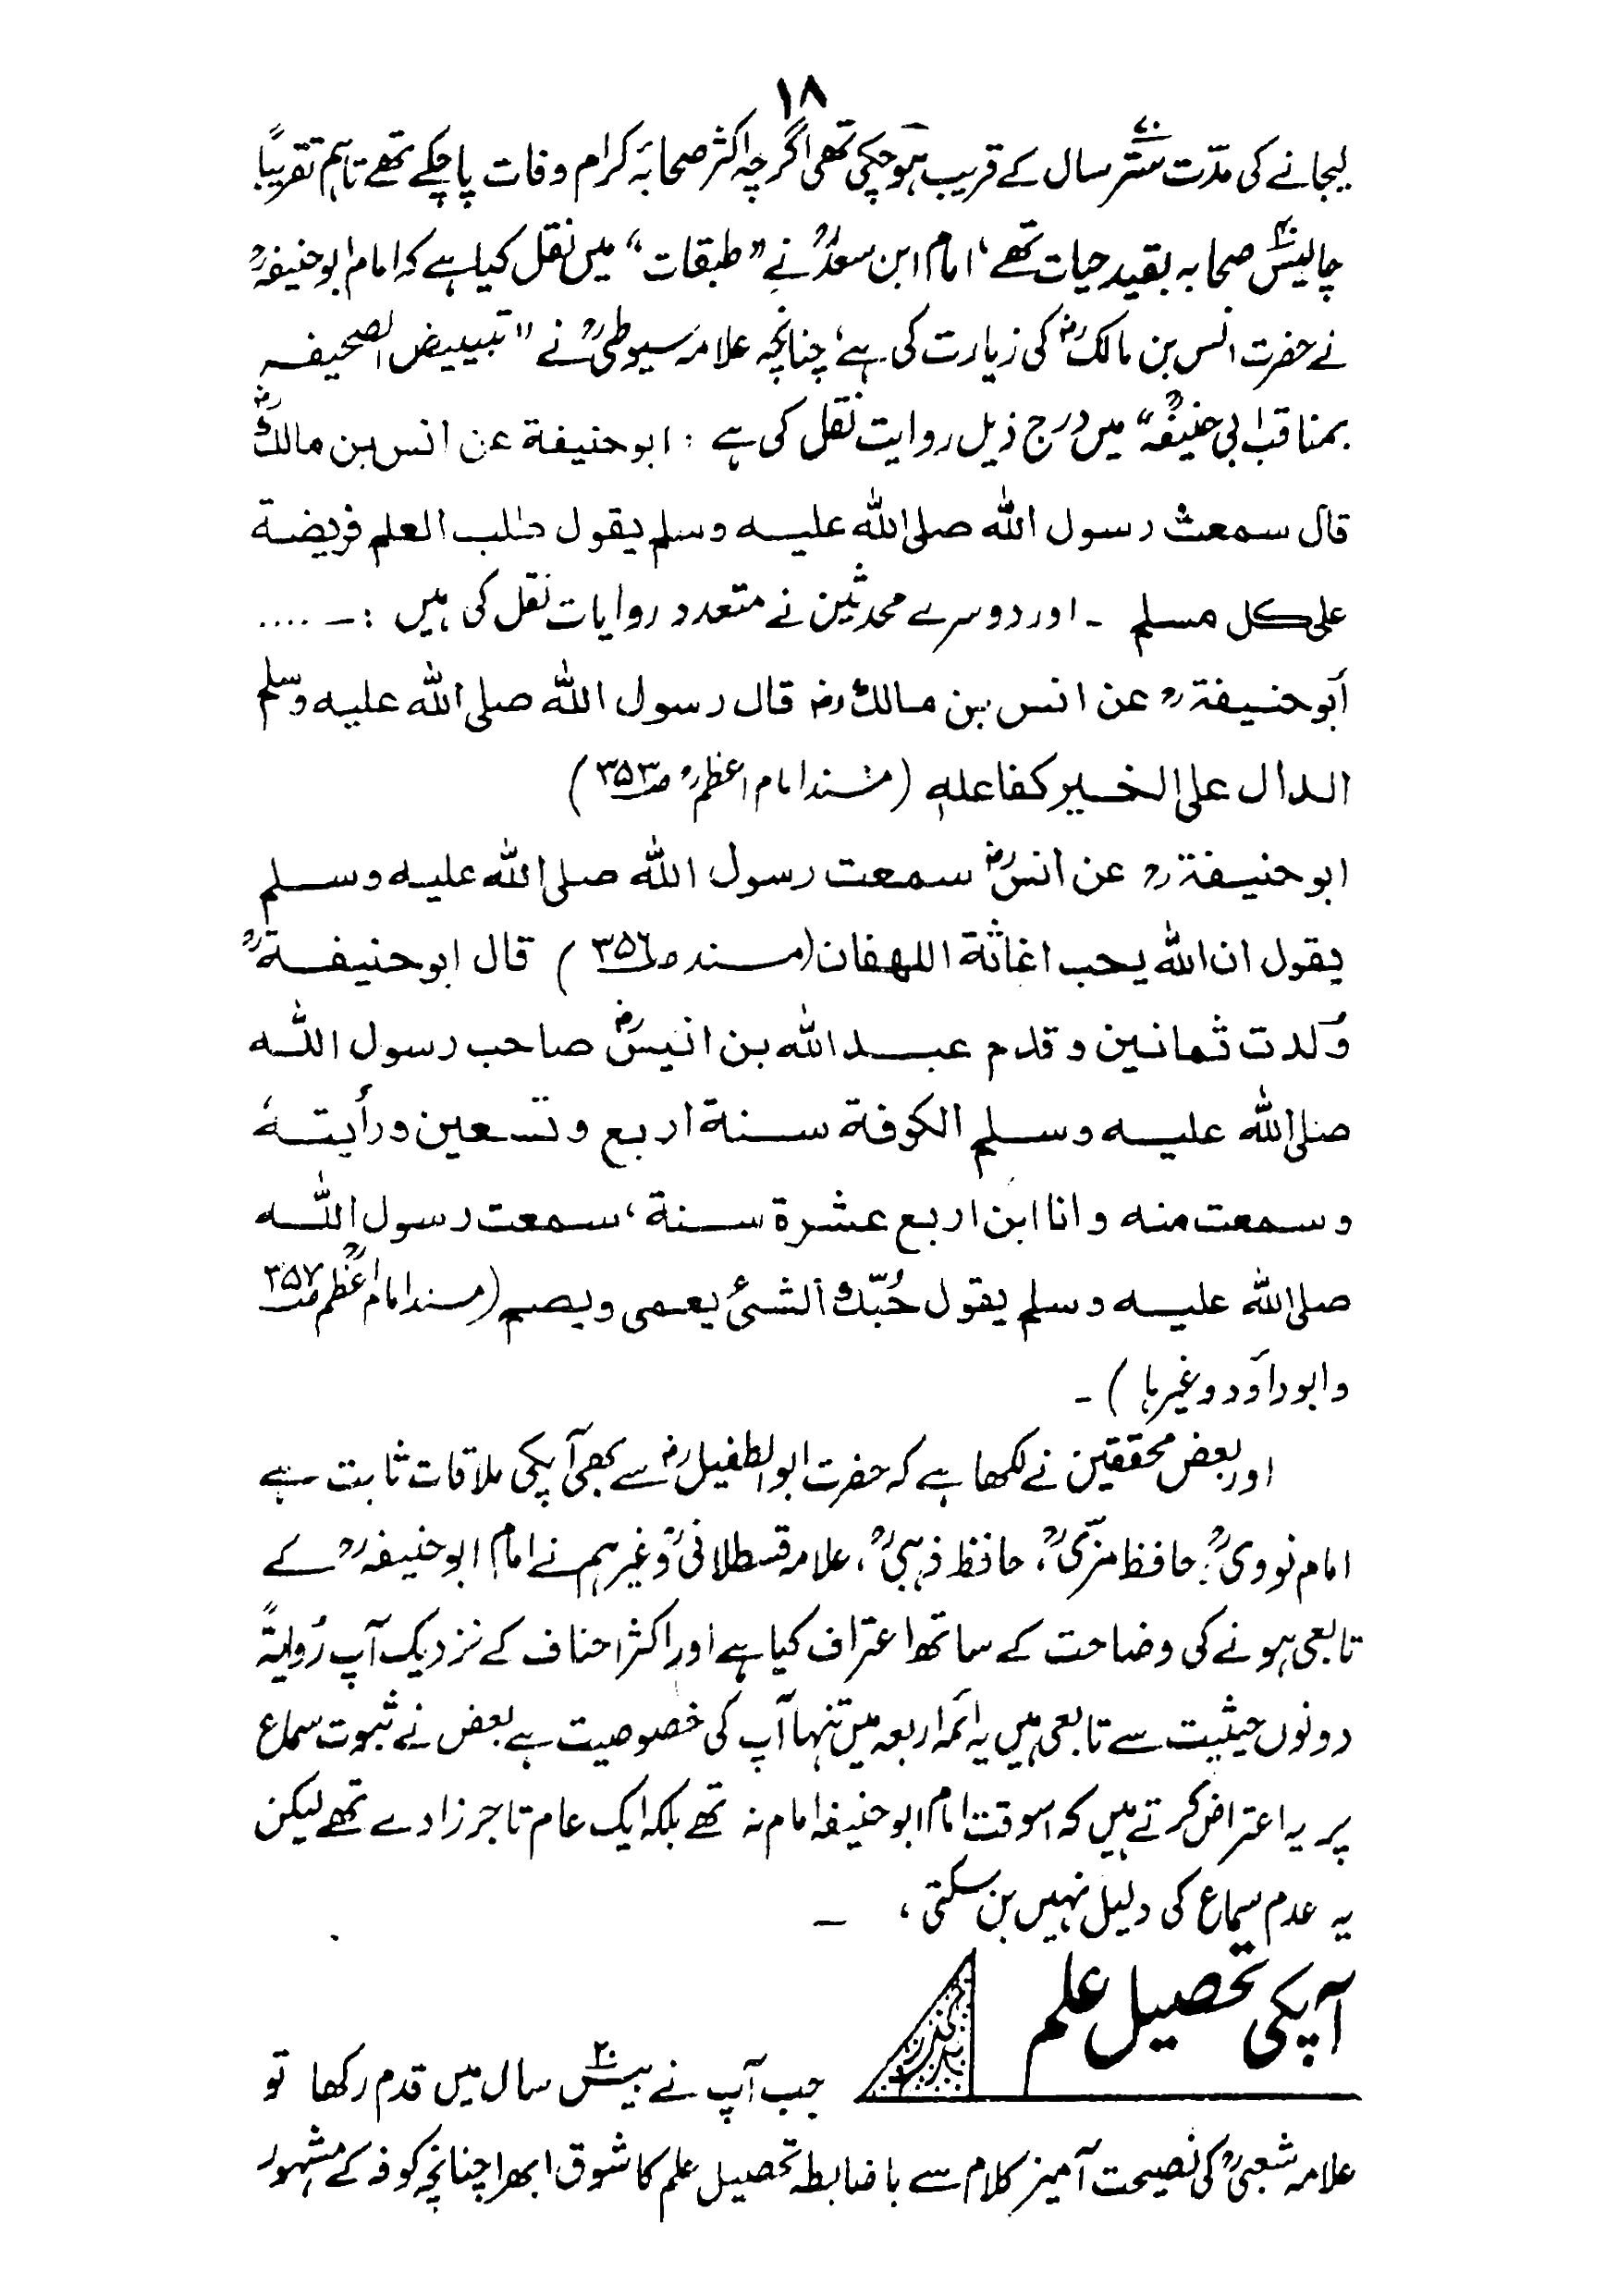 ۱۸
لیجانے کی مدّت ستّر۷۰ سال کے قریب ہوچکی تھی اگرچہ اکثر صحابۂ کرام وفات پاچکے تھے تاہم تقریبًا
چالیس۴۰ صحابہ بقید حیات تھے ، امام ابن سعدؒ نے ”طبقات“ میں نقل کیا ہے کہ امام ابوحنیفہؒ
نے حضرت انس بن مالکؓ کی زیارت کی ہے، چنانچہ علامہ سیوطیؒ نے ”تبییض الصحیفہ
بمناقب ابی حنیفہؒ“ میں درج ذیل روایت نقل کی ہے : ابوحنیفة عن انس بن مالکؓ
قال سمعت رسول اللہ صلی اللہ علیہ وسلم یقول طلب العلم فریضة
علی کل مسلم ۔ اور دوسرے محدثین نے متعدد روایات نقل کی ہیں :۔ ....
أبوحنیفةؒ عن انس بن مالکؓ قال رسول اللہ صلی اللہ علیہ وسلم
الدال علی الخیر کفاعلہ (مسند امام اعظمؒ صـ۳۵۳)
ابوحنیفةؒ عن انسؓ سمعت رسول اللہ صلی اللہ علیہ وسلم
یقول ان اللہ یحب اغاثة اللھفان (مسند صـ۳۵۶) قال ابوحنیفةؒ
وُلدت ثمانین وقدم عبد اللہ بن انیسؓ صاحب رسول اللہ
صلی اللہ علیہ وسلم الکوفة سنة اربع وتسعین ورأیتہٗ
وسمعت منہ وانا ابن اربع عشرة سنة، سمعت رسول اللہ
صلی اللہ علیہ وسلم یقول حُبّک الشئ یعمی ویصم (مسند امام اعظمؒ صـ۳۵۷
وابوداؤد وغیرہا) ۔
اور بعض محققین نے لکھا ہے کہ حضرت ابوالطفیلؓ سے بھی آپکی ملاقات ثابت ہے
امام نوویؒ، حافظ مزّیؒ، حافظ ذہبیؒ، علامہ قسطلانیؒ وغیرہم نے امام ابوحنیفہؒ کے
تابعی ہونے کی وضاحت کے ساتھ اعتراف کیا ہے اور اکثر احناف کے نزدیک آپ رُوایۃً
دونوں حیثیت سے تابعی ہیں یہ ائمہ اربعہ میں تنہا آپ کی خصوصیت ہے بعض نے ثبوت سماع
پر یہ اعتراض کرتے ہیں کہ اسوقت امام ابوحنیفہ امام نہ تھے بلکہ ایک عام تاجر زادے تھے لیکن
یہ عدم سماع کی دلیل نہیں بن سکتی ، ۔
آپکی تحصیل علم
جب آپ نے بیس۲۰ سال میں قدم رکھا تو
علامہ شعبیؒ کی نصیحت آمیز کلام سے باضابطہ تحصیل علم کا شوق ابھرا چنانچہ کوفہ کے مشہور